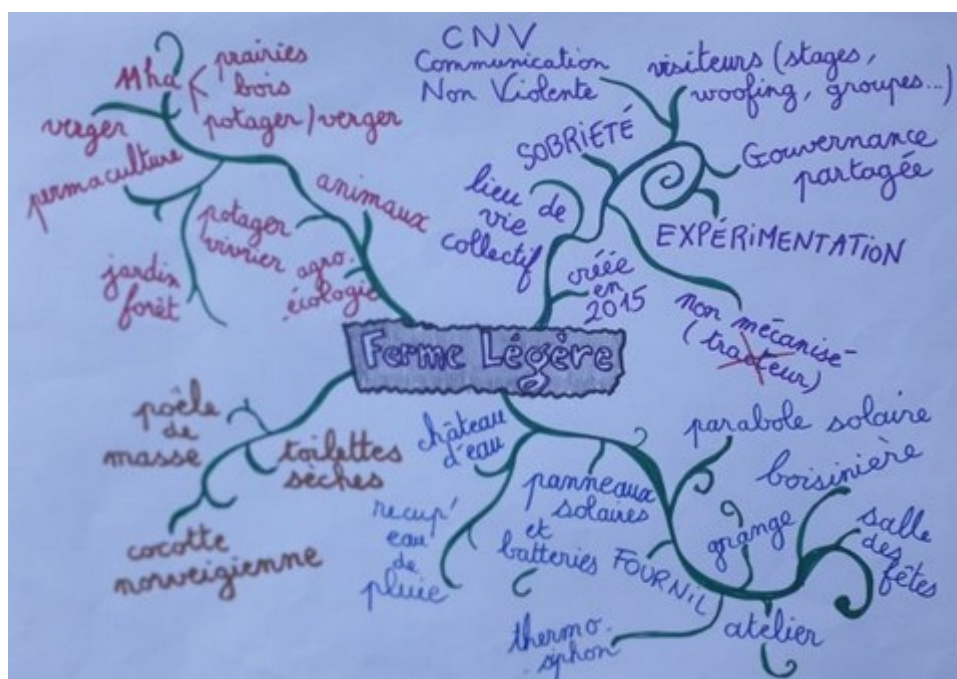 Ferme Légère
11ha
prairies
bois
potager/verger
verger
permaculture
animaux
potager
vivrier
agro-
écologie
jardin
forêt
CNV
Communication
Non Violente
visiteurs (stages,
woofing, groupes...)
SOBRIÉTÉ
Gouvernance
partagée
lieu de
vie
collectif
EXPÉRIMENTATION
créée
en
2015
non mécanisé
(tracteur)
poêle
de
masse
toilettes
sèches
cocotte
norveigienne
château
d'eau
recup'
eau
de
pluie
panneaux
solaires
et
batteries
FOURNIL
parabole solaire
boisinière
grange
salle
des
fêtes
atelier
thermo-
siphon